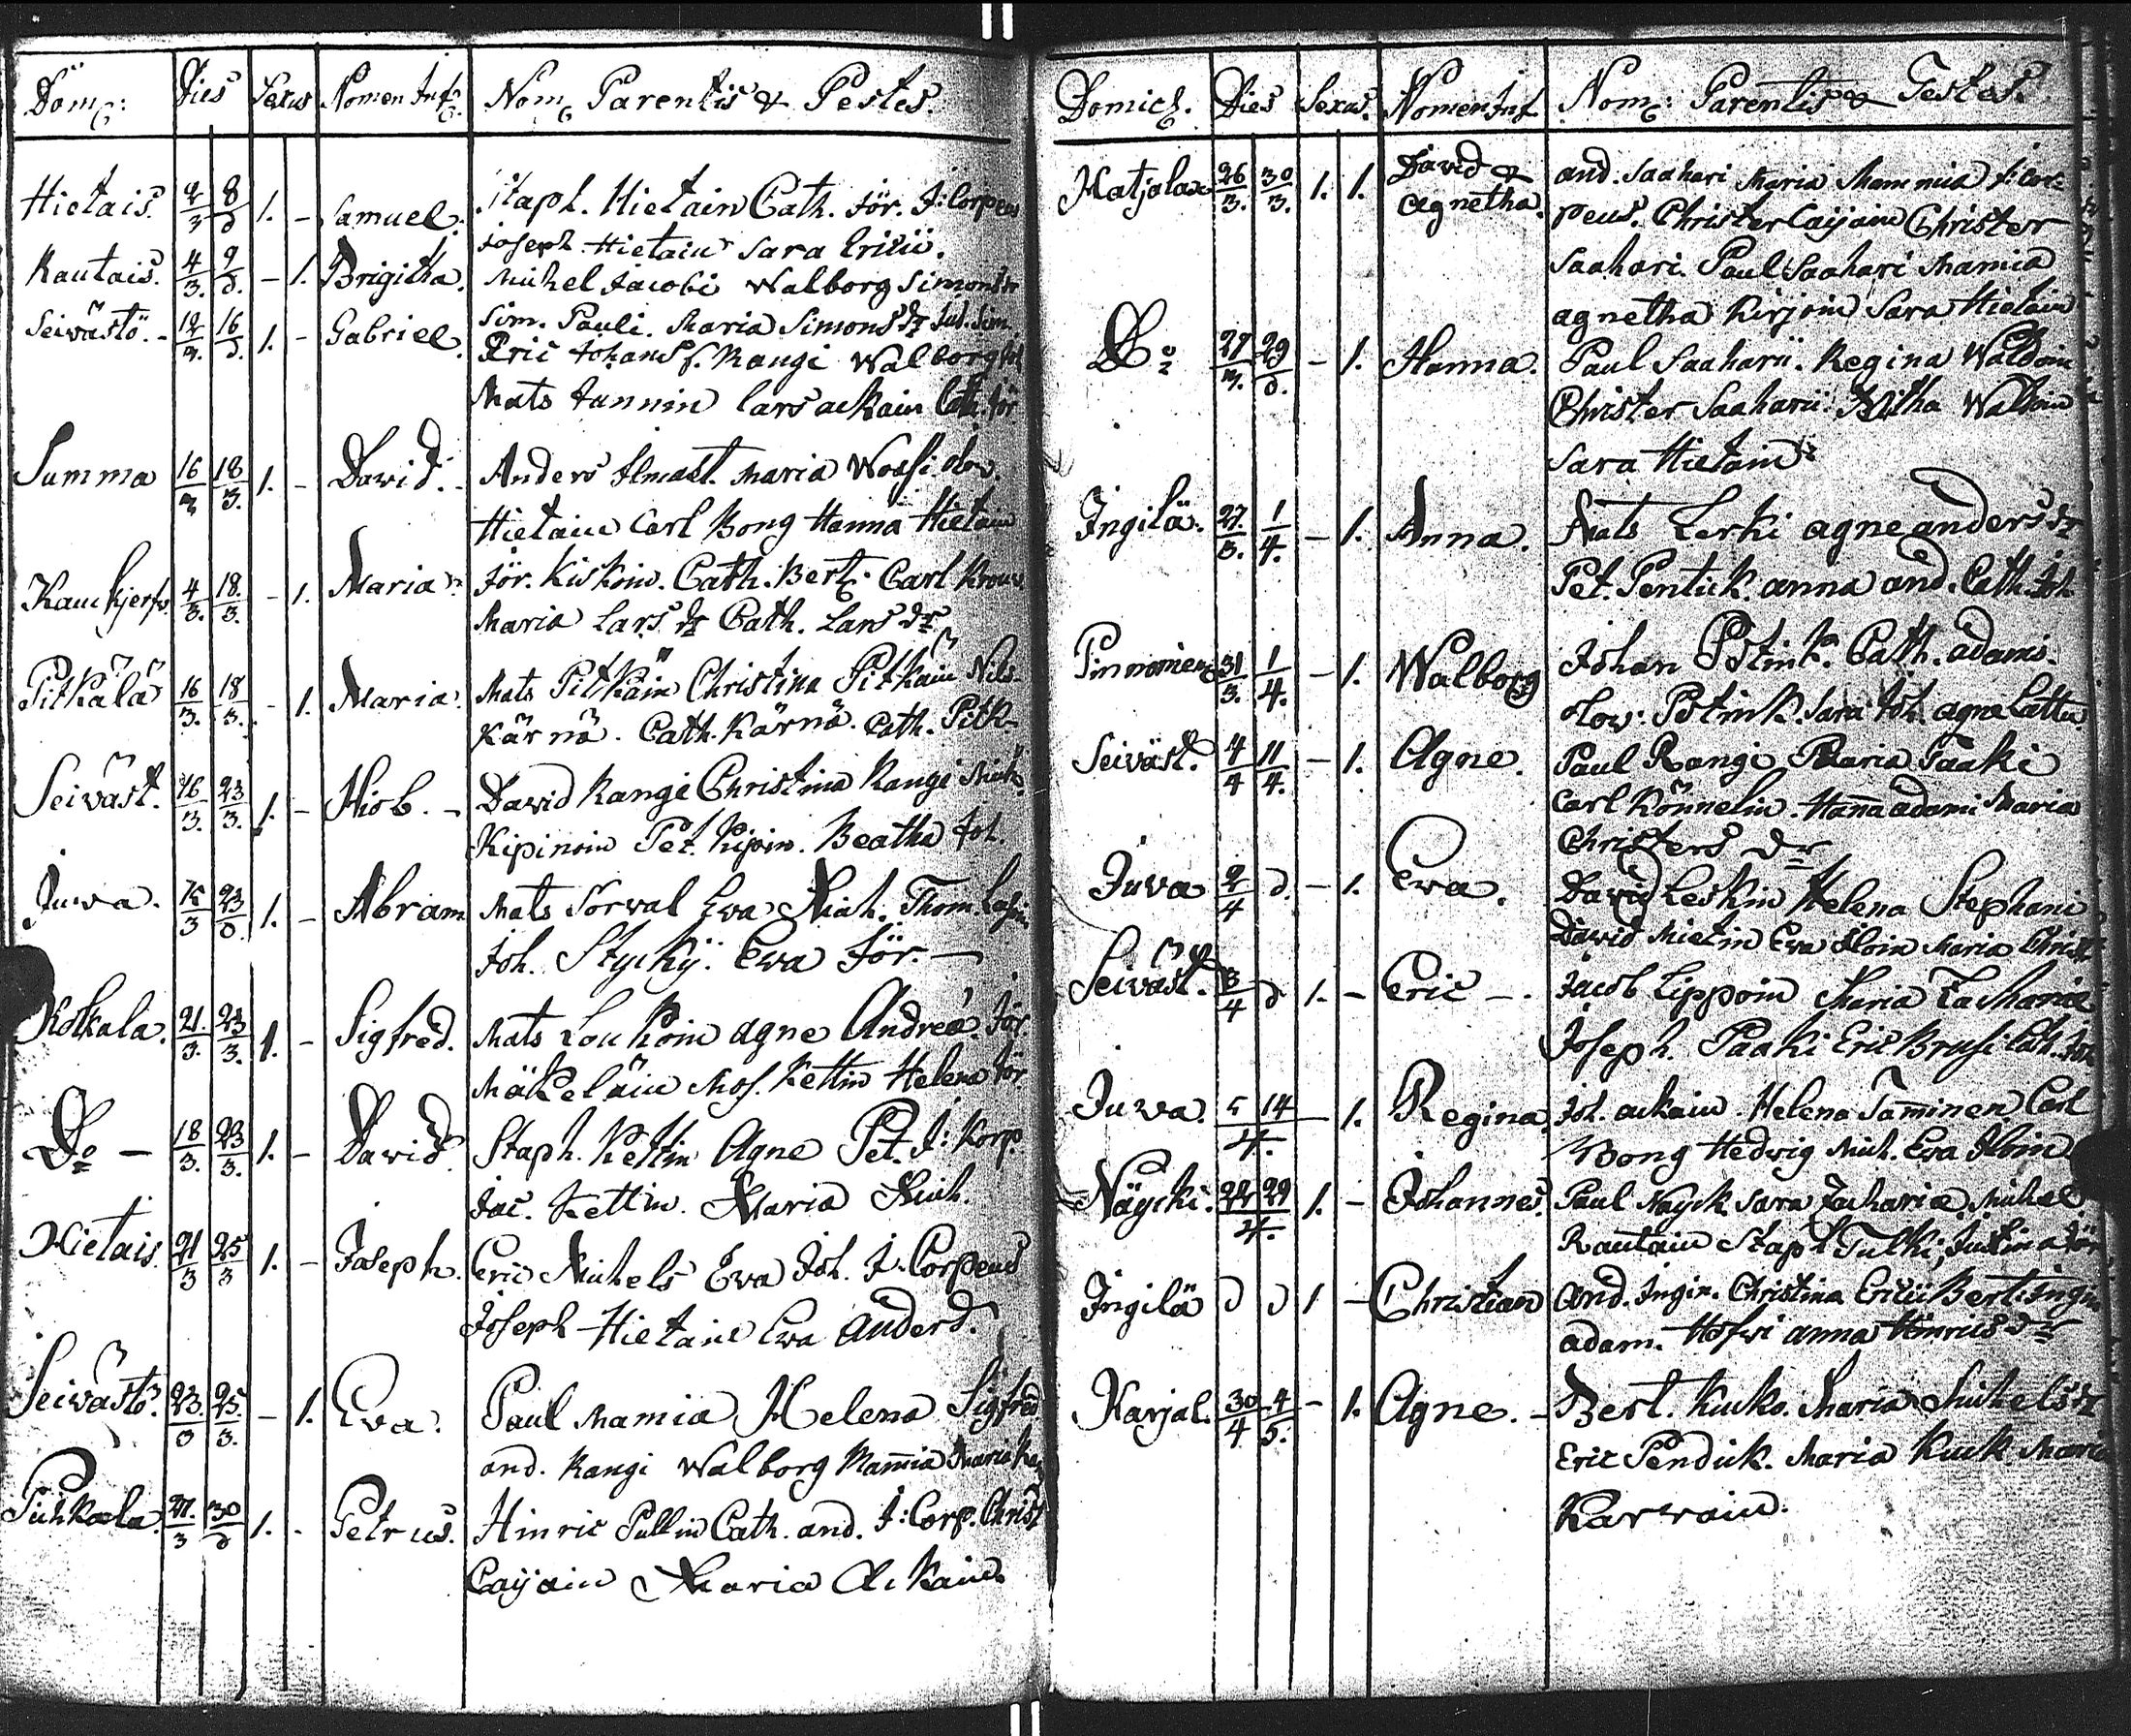 Dom: Dies Sexus Nomen Inf: Nom: Parentis & Testes.
Hietais. 2/3 8/d 1. - Samuel. Staph. Hietain Cath. Jör. J: Corpeus
Joseph Hietain Sara Ericii.
Rautais. 4/3. 9/d. - 1. Brigitha. Michel Jacobi Walborg Simonsdr
Sim. Pauli. Maria Simonsdr
Seivästö. - 12/3. 16/d. 1. - Gabriel. Eric Johans s. Rangi Walborg
Mats Junnin Lars Ackain Cath. Jör
Summa 16/3 18/3. 1. - David. - Anders Ilmast. Maria Woss: olow.
Hietain Carl Bong Hanna Hietain
Kauckjerfw. 4/3. 18./3. - 1. Maria. Jör. Kiskoin. Cath. Bert: Carl
Maria Lars dr Cath. Lars dr
Pitkälä 16/3. 18/3. - 1. Maria. Mats Pitkäin Christina Pitkäin Nils
Kärnä. Cath. Kärnä. Cath. Pitk-
Seiväst. 16/3. 23/3. 1. - Hiob. - David Rangi Christina Rangi Mich.
Kipinoin Pet. Kipoin. Beatha Joh.
Juwa. 15/3 23/d. 1. - Abram Mats Sorwal Ewa Mich. Thom.
Joh. Styckÿ. Ewa Jör. -
Kolkala. 21./3. 23/3. 1. - Sigfred. Mats Loukoin Agne Andreæ. Jör.
Mäkeläin Mos. Kettin Helena Jör
Do - 18/3. 23/3. 1. - David. Staph. Kettin Agne Pet. J: Korp.
Jac. Kettin. Maria Mich.
Hietais. 21/3 25/3 1. - Joseph. Eric Michels Eva Joh. J. Corpeus
Joseph Hietain Ewa Anders d.
Seivästö. 23./3 25./3. - 1. Eva. Paul Mamia Helena Sigfred
and. Rangi Walborg Mam̄ia Maria
Puhkala. 27./3 30/d 1. - Petrus. Hinric Pullin Cath. and. J: Corp. Christ
Caijain Maria Ackain.
Domicil. Dies Sexus. Nomen Inf. Nom: Parentis & Testes.
Hatjalax 26/3. 30/3. 1. 1. David & and. Saahari Maria Mammia J: Cor-
Agnetha. peus. Christer Caijain Christer
Saahari. Paul Saahari Mamia
agnetha Kirjoin Sara Hietain
Do 27/3. 29/d. - 1. Hanna. Paul Saaharii. Regina Waldoin
Christer Saaharii. Britha Waldoin
Sara Hietain
Ingilä. 27./3. 1/4. - 1. Anna. Mats Lerki agne anders dr
Pet. Pentick. anna and. Cath. Joh.
Pinnonien 31/3. 1/4. - 1. Walborg Johan Pstink. Cath. adams.
olow. Pstink. Sara Joh. agne Lattu
Seiväst. 4/4 11/4. - 1. Agne. Paul Rangi Maria Paaki
Carl Könnelin. Han̄a adami Maria
Christers dr
Juva 2/4 d. - 1. Ewa. David Leskin Helena Stephani
David Mietin Ewa Iloin Maria Christ
Seiväst. 3/4 d 1. - Eric - . Jacob Lippoin Maria Zacharia
Joseph. Paaki Eric Brusi Cath. Jör
Juwa. 5 14/4. - 1. Regina. Joh. Ackain. Helena Tam̄inen Carl
Bong Hedwig Mich. Ewa Iloin
Näycki. 24 29/4. 1. - Johannes. Paul Nayck Sara Zacharia Michel
Rautain Staph Tulki, Justina Jör
Ingilä d d 1 - Christian And. Ingin. Christina Ericii Bert. Ingin
adam. Hofwi anna Hinrics dr
Karjal. 30/4 4/5. - 1. Agne. - Bert. Kucko. Maria Michels dr
Eric Pendick. Maria Kuck. Maria
Karvain.